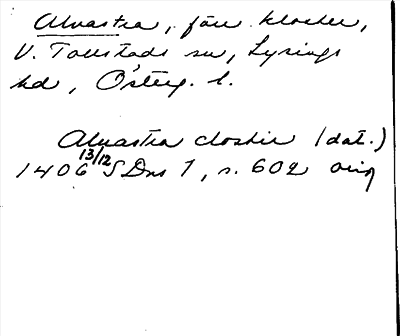 Alvastra, förr kloster,
V. Tollstads sn, Lysings
hd, Österg. l.
Alvastra closter (dat.)
1406 13/12 SDns 1, s. 602 orig